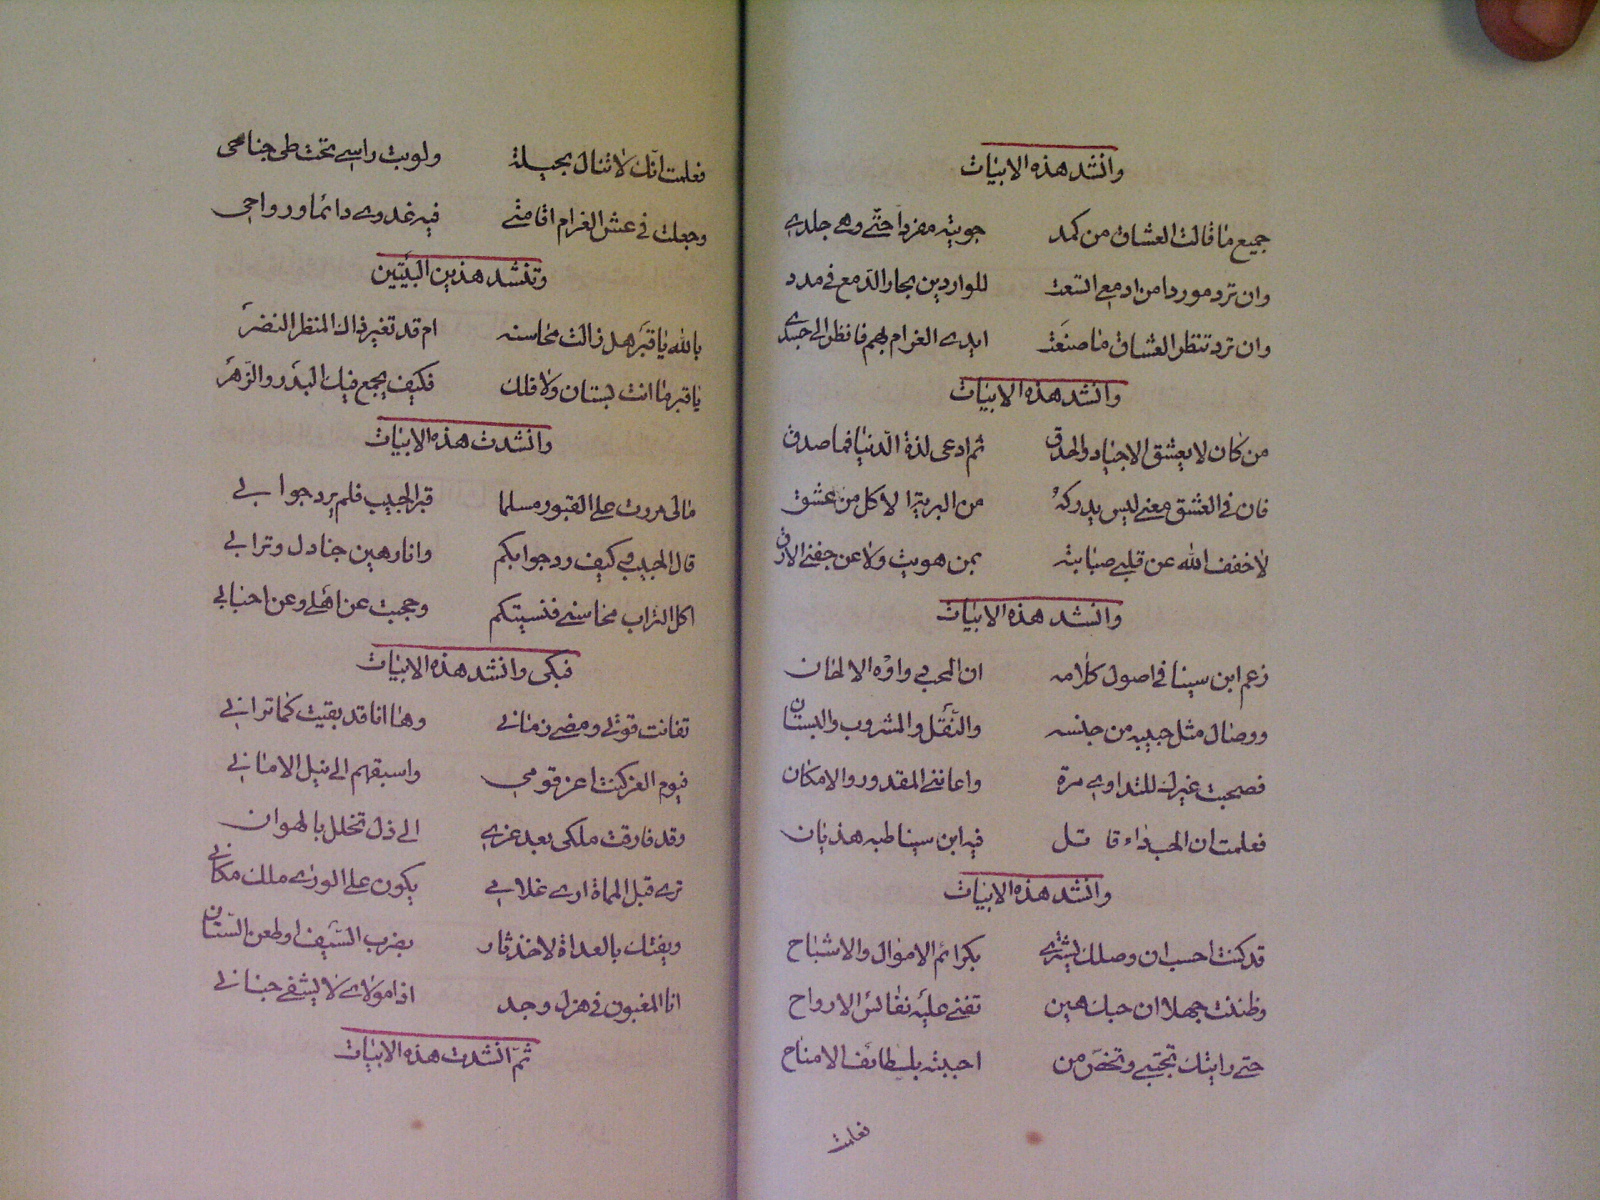 وانشد هذه الابيات
جميع ما قالت العشاق من كمد حويته مفردا حتى وهى جلدى
وان ترد موردا من ادمع اتسعت للواردين بحار الدمع فى مدد
وان ترد تنظر العشاق ما صنعت ايدى الغرام بهم فانظر الى جسدى
وانشد هذه الابيات
من كان لا يعشق الاجياد والحدق ثم ادعى لذة الدنيا فما صدق
فان فى العشق معنى ليس يدركه من البرية الا كل من عشق
لا خفف الله عن قلبى صبابته بمن هويت ولا عن جفنى الارق
وانشد هذه الابيات
زعم ابن سينا فى اصول كلامه ان المحب دواؤه الالحان
ووصال مثل حبيبه من جنسه والنقل والمشروب والبستان
فصحبت غيرك للتداوى مرة واعاننى المقدور والامكان
فعلمت ان الحب داء قاتل فيه ابن سينا طبه هذيان
وانشد هذه الابيات
قد كنت احسب ان وصلك يشترى بكرائم الاموال والاشباح
وظننت جهلا ان حبك هين تفنى عليه نفائس الارواح
حتى رايتك تجتبى وتخص من احببته بلطائف الامناح
فعلمت
فعلمت انك لا تنال بحيلة ولويت راسى تحت طى جناحى
وجعلت فى عش الغرام اقامتى فيه غدوى دائما ورواحى
وتنشد هذين البيتين
بالله يا قبر هل زالت محاسنه ام قد تغير ذاك المنظر النضر
يا قبر ما انت بستان ولا فلك فكيف يجمع فيك البدر والزهر
وانشدت هذه الابيات
مالى مررت على القبور مسلما قبر الحبيب فلم يرد جوابى
قال الحبيب وكيف رد جوابكم وانا رهين جنادل وترابى
اكل التراب محاسنى فنسيتكم وحجبت عن اهلى وعن احبابى
فبكى وانشد هذه الابيات
تفانت قوتى ومضى زمانى وها انا قد بقيت كما ترانى
فيوم العز كنت اعز قومى واسبقهم الى نيل الامانى
وقد فارقت ملكى بعد عزى الى ذل تخلل بالهوان
ترى قبل المماة ارى غلابى يكون على الورى ملك مكانى
ويفتك بالعداة لاخذ ثار بضرب السيف او طعن السنان
انا المغبون فى هزل وجد اذا مولاى لا يشفى جنانى
ثم انشدت هذه الابيات